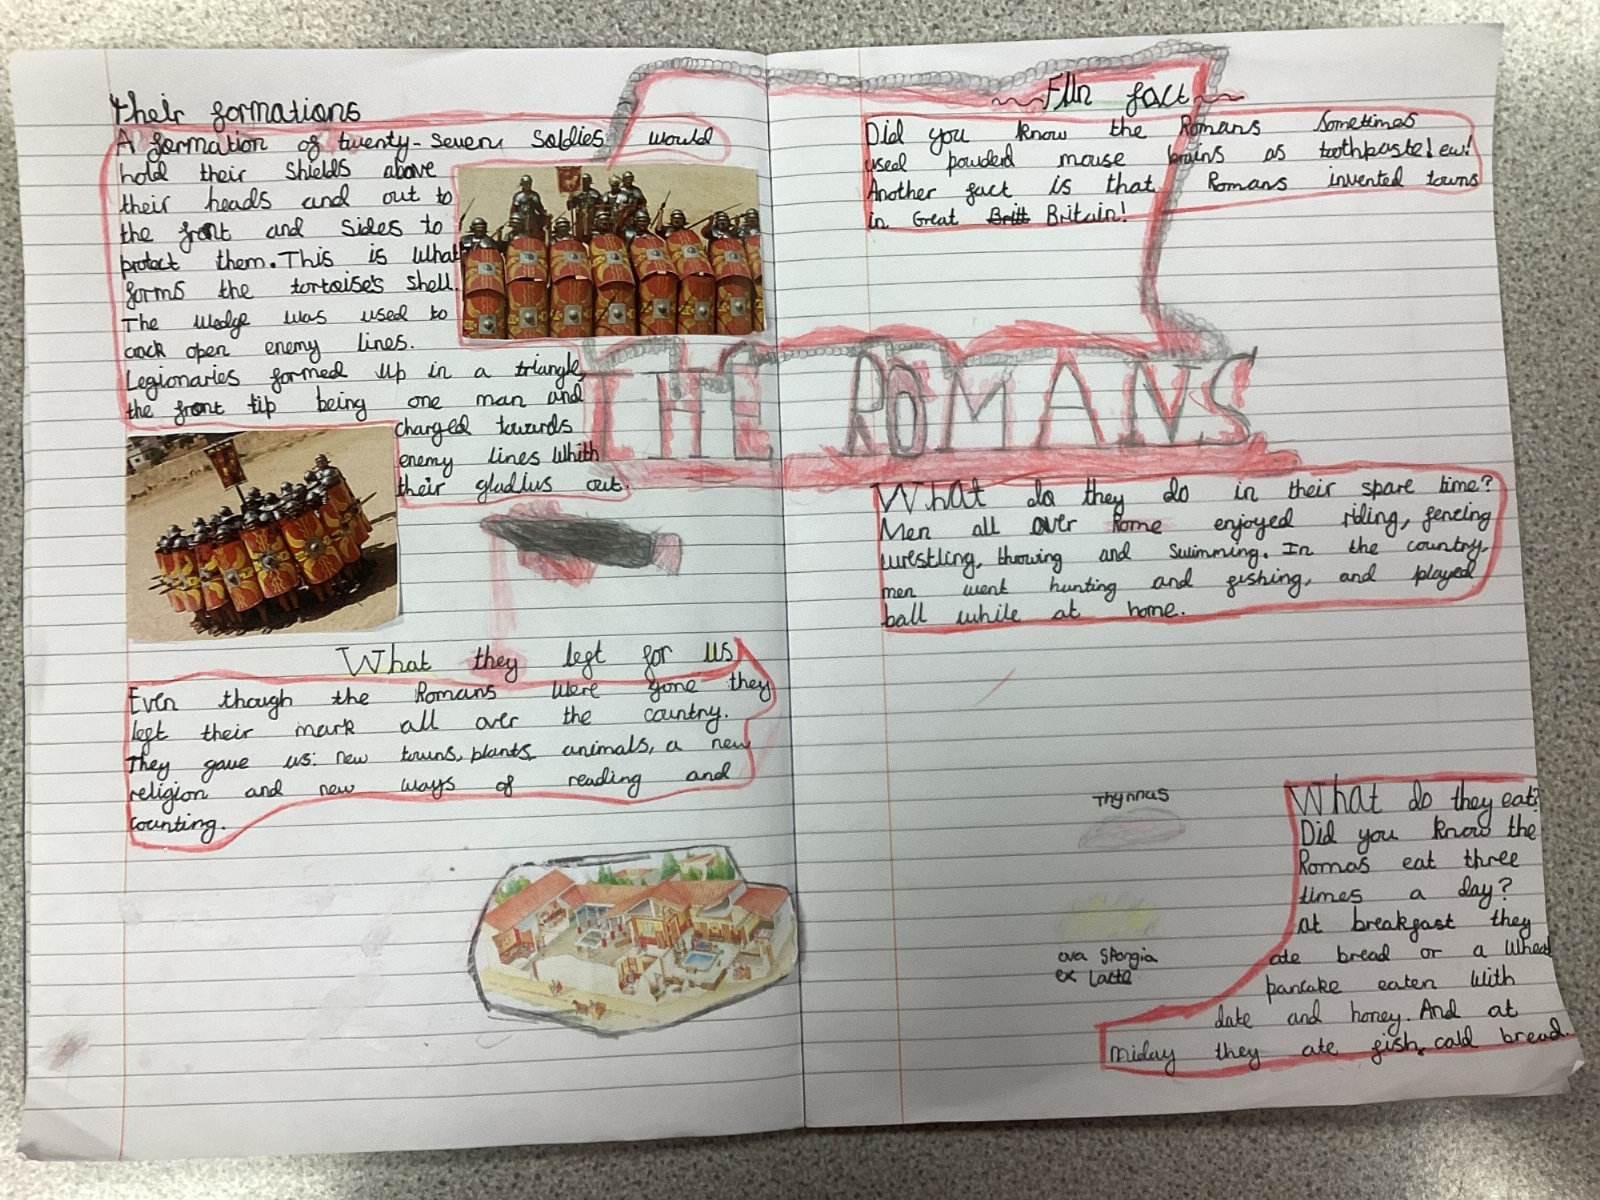 Their formations
A formation of twenty-seven soldies would
hold their shields above
their heads and out to
the front and sides to
protect them. This is what
forms the tortoise's shell.
The wedge was used to
crack open enemy lines.
Legionaries formed up in a triangle,
the front tip being one man and
charged towards
enemy lines Whith
their gladius out.
What they left for us
Even though the Romans were gone they
left their mark all over the country.
They gave us: new towns, plants, animals, a new
religion and new ways of reading and
counting.
Fun fact
Did you know the Romans sometimes
used powderd mouse brains as toothpaste! ew!
Another fact is that Romans invented towns
in Great Britt Britain!
THE ROMANS
What do they do in their spare time?
Men all over Rome enjoyed riding, fencing
wrestling, throwing and swimming. In the country,
men went hunting and fishing, and played
ball while at home.
Thynnus
ova spongia
ex Lacte
What do they eat?
Did you know the
Romas eat three
times a day?
at breakfast they
ate bread or a wheat
pancake eaten with
date and honey. And at
miday they ate fish, cold bread.